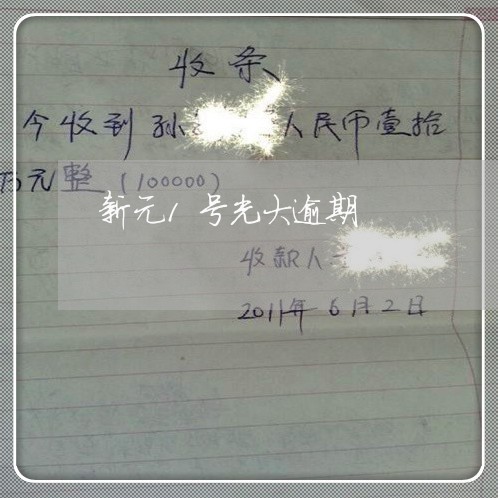 收条
今收到孙 人民币壹拾
万元整（100000）
新元1号光大逾期
收款人
2011年6月2日